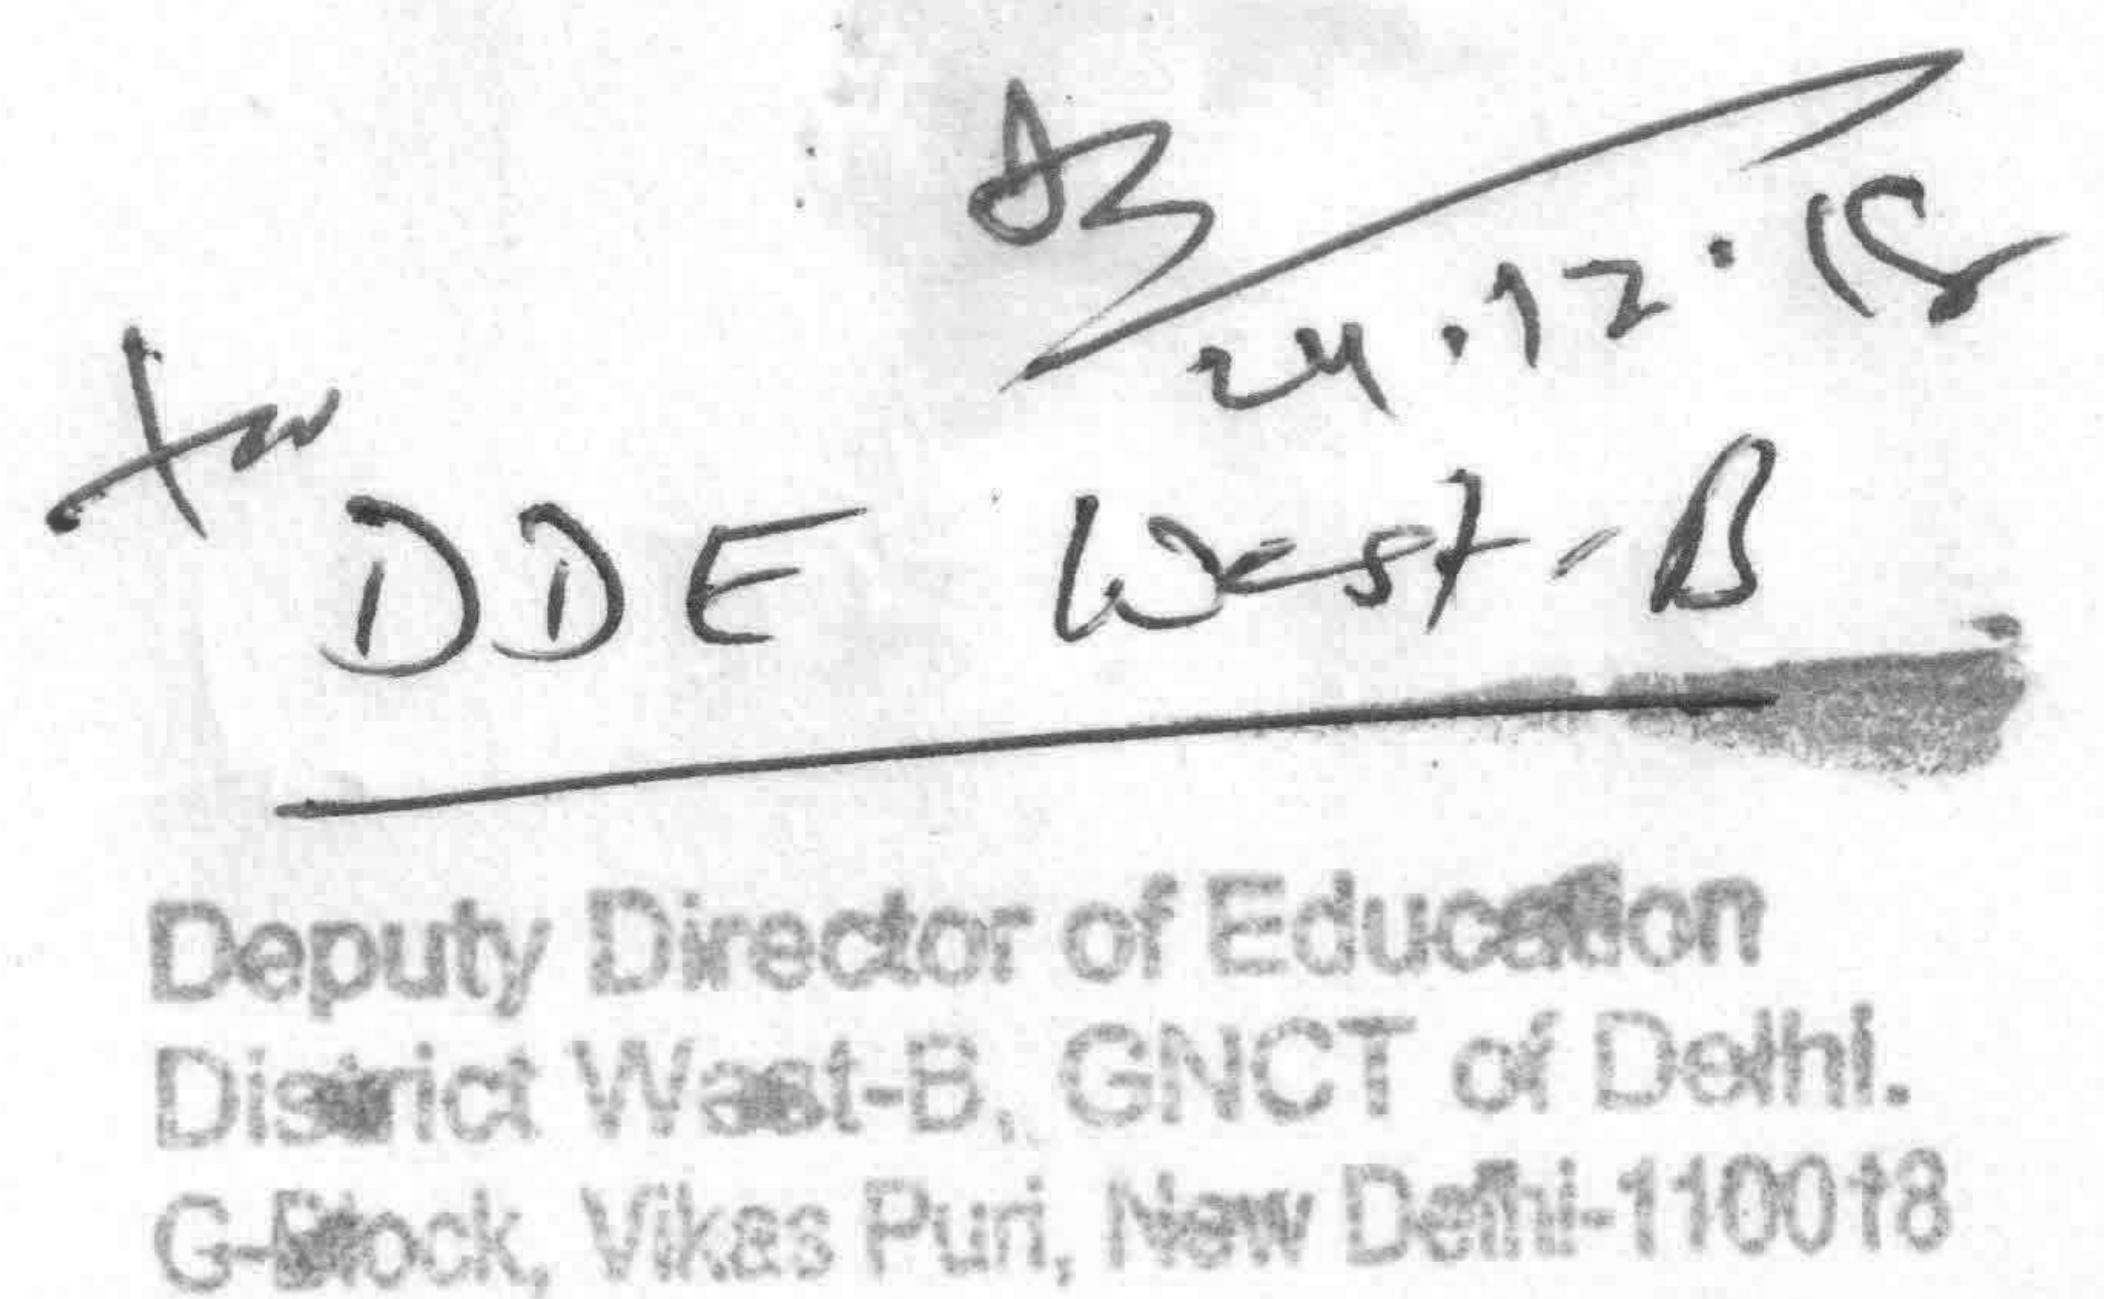 24.12.18
DDE West-B
Deputy Director of Education
District West-B, GNCT of Delhi.
G-Block, Vikas Puri, New Delhi-110018